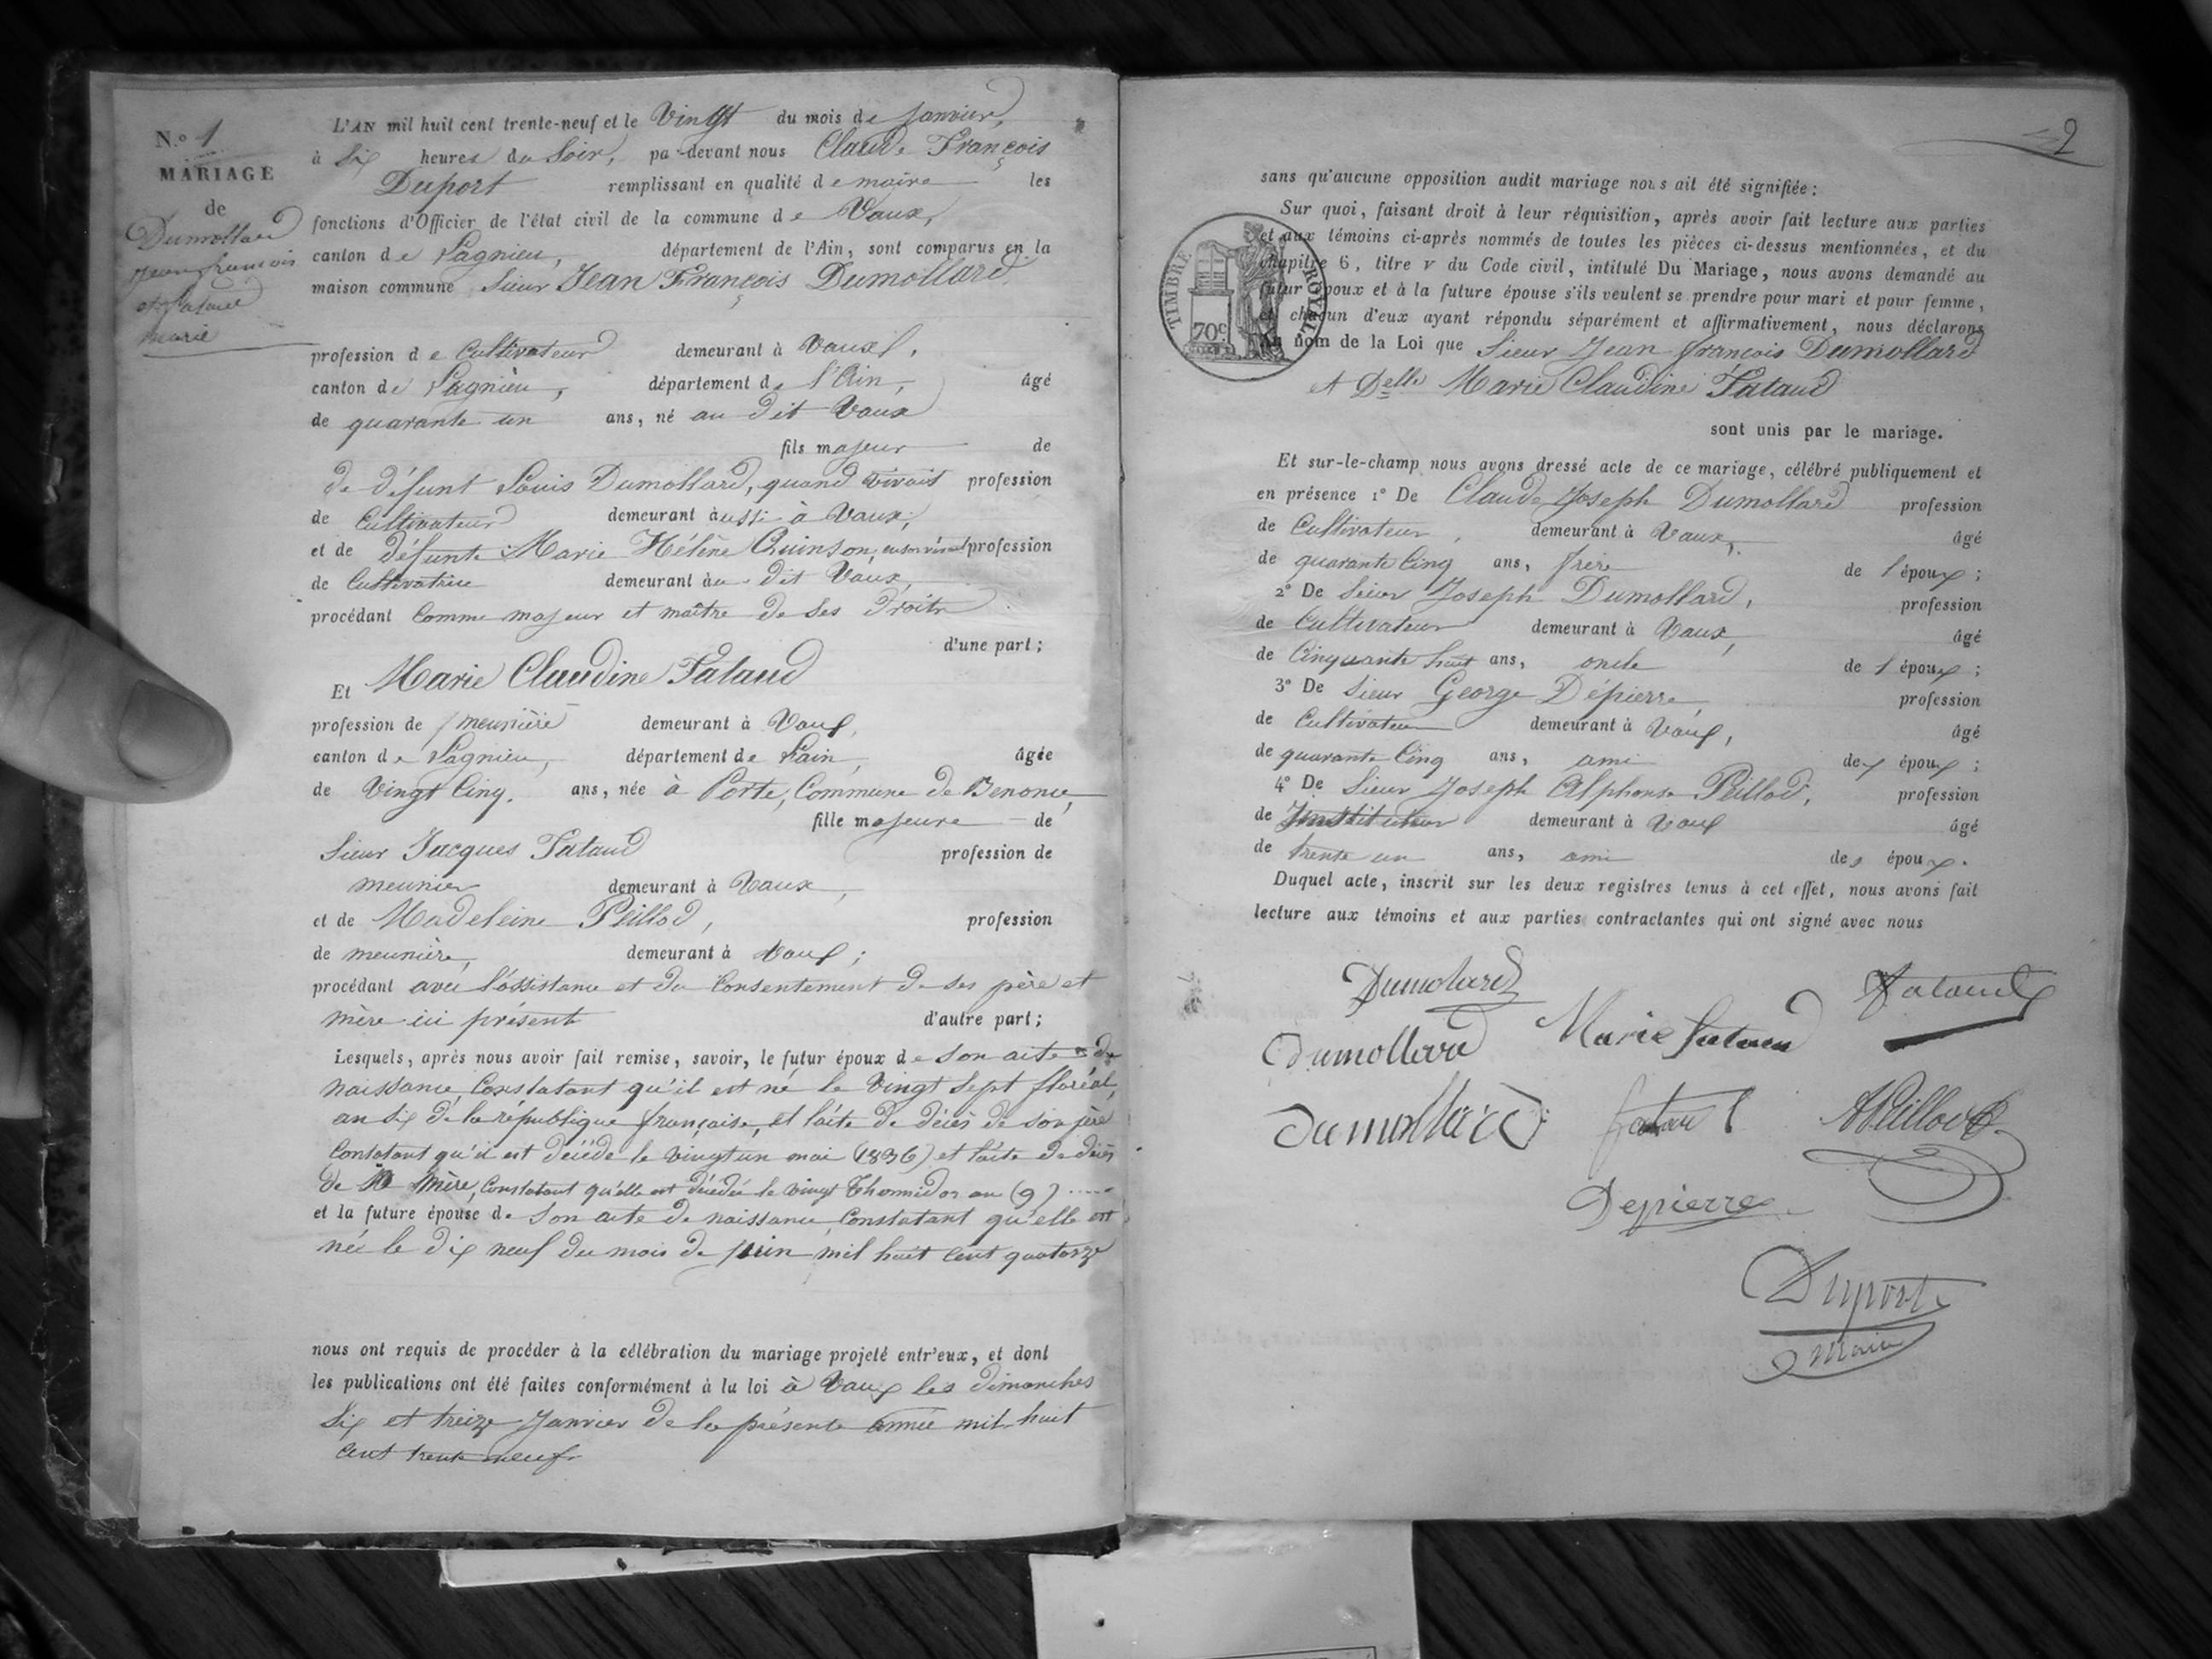 N.º 1
MARIAGE
de
Dumollard
Jean françois
et Fataud
marie
L'AN mil huit cent trente-neuf et le Vingt du mois de Janvier,
à Six heures du Soir, par-devant nous Claude François
Duport remplissant en qualité de maire les
fonctions d'Officier de l'état civil de la commune de Vaux,
canton de Lagnieu, département de l'Ain, sont comparus en la
maison commune Sieur Jean François Dumollard
profession de Cultivateur demeurant à Vaux,
canton de Lagnieu, département de l'Ain, âgé
de quarante un ans, né au dit Vaux
fils majeur de
de défunt Louis Dumollard, quand vivait profession
de Cultivateur demeurant aussi à Vaux,
et de défunte Marie Hélène Quinson, en son vivant profession
de Cultivatrice demeurant au dit Vaux,
procédant comme majeur et maître de ses droits
d'une part ;
Et Marie Claudine Fataud
profession de meunière demeurant à Vaux,
canton de Lagnieu, département de l'ain, âgée
de Vingt Cinq. ans, née à Porte, Commune de Benonce,
fille majeure de
Sieur Jacques Fataud profession de
meunier demeurant à Vaux,
et de Madeleine Peillod, profession
de meunière, demeurant à Vaux ;
procédant avec l'assistance et du Consentement de ses père et
mère ici présent d'autre part ;
Lesquels, après nous avoir fait remise, savoir, le futur époux de son acte de
naissance, Constatant qu'il est né le Vingt Sept floréal,
an six de la république française, et l'acte de décès de son père
Constatant qu'il est décédé le vingt un mai (1836) et l'acte de décès
de sa mère, Constatant qu'elle est décédée le vingt Thermidor an (9) .....
et la future épouse de son acte de naissance, Constatant qu'elle est
née le dix neuf du mois de juin mil huit cent quatorze
nous ont requis de procéder à la célébration du mariage projeté entr'eux, et dont
les publications ont été faites conformément à la loi à Vaux les dimanches
Six et treize Janvier de la présente année mil huit
cent trente neuf
2
sans qu'aucune opposition audit mariage nous ait été signifiée ;
Sur quoi, faisant droit à leur réquisition, après avoir fait lecture aux parties
et aux témoins ci-après nommés de toutes les pièces ci-dessus mentionnées, et du
chapitre 6, titre v du Code civil, intitulé Du Mariage, nous avons demandé au
futur époux et à la future épouse s'ils veulent se prendre pour mari et pour femme,
et chacun d'eux ayant répondu séparément et affirmativement, nous déclarons
au nom de la Loi que Sieur Jean françois Dumollard
et Delle Marie Claudine Fataud
sont unis par le mariage.
TIMBRE ROYAL
70c
Et sur-le-champ nous avons dressé acte de ce mariage, célébré publiquement et
en présence 1º De Claude Joseph Dumollard profession
de Cultivateur, demeurant à Vaux, âgé
de quarante Cinq ans, frère de l'époux ;
2º De Sieur Joseph Dumollard, profession
de Cultivateur demeurant à Vaux, âgé
de Cinquante huit ans, oncle de l'époux ;
3º De Sieur George Dépierre, profession
de Cultivateur demeurant à Vaux, âgé
de quarante Cinq ans, ami des époux ;
4º De Sieur Joseph Alphonse Peillod, profession
de Instituteur demeurant à Vaux âgé
de trente un ans, ami des époux.
Duquel acte, inscrit sur les deux registres tenus à cet effet, nous avons fait
lecture aux témoins et aux parties contractantes qui ont signé avec nous
Dumolard Fataud
Dumollard Marie fataud
Dumollard fataud APeillod
Depierre
Duport
Maire